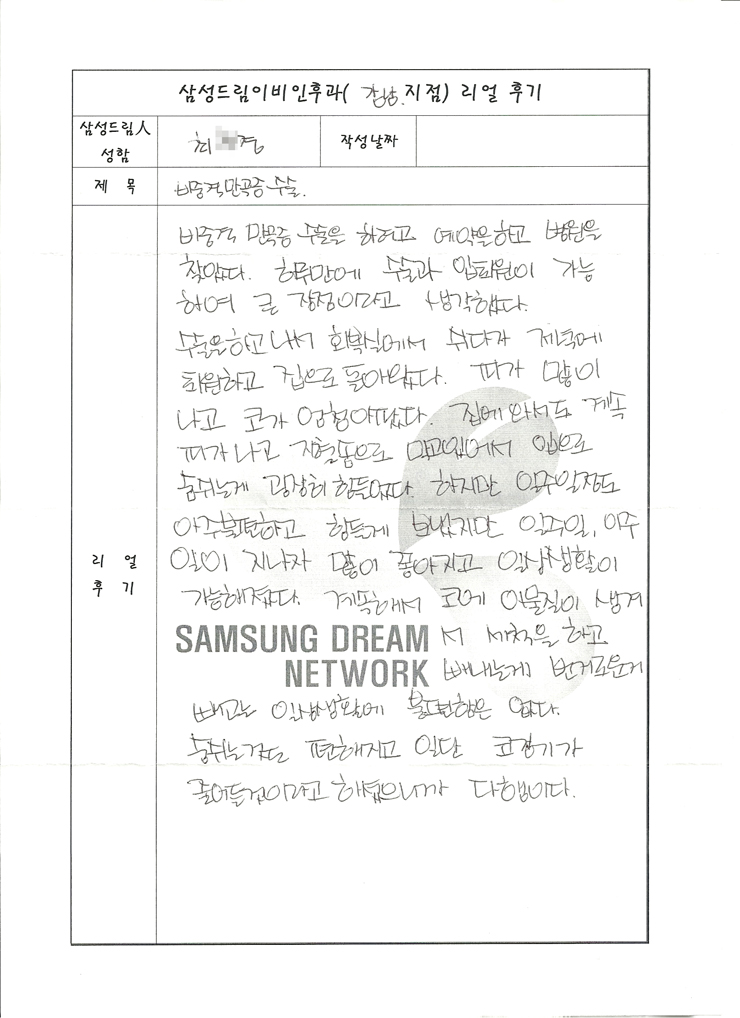 삼성드림이비인후과( 강남 지점) 리얼 후기
삼성드림人
성함
최 경
작성날짜
제 목
비중격만곡증 수술.
리 얼
후 기
비중격 만곡증 수술을 하려고 예약을하고 병원을
찾았다. 하루만에 수술과 입퇴원이 가능
하여 큰 장점이라고 생각했다.
수술을하고나서 회복실에서 쉬다가 저녁에
퇴원하고 집으로 돌아왔다. 피가 많이
나고 코가 엄청아팠다. 집에 와서도 계속
피가나고 지혈솜으로 막고있어서 입으로
숨쉬는게 굉장히 힘들었다. 하지만 일주일정도
아주불편하고 힘들게 보냈지만 일주일, 이주
일이 지나자 많이 좋아지고 일상생활이
가능해졌다. 계속해서 코에 이물질이 생겨
서 세척을 하고
빼내는게 번거로운거
빼고는 일상생활에 불편함은 없다.
숨쉬는것도 편해지고 일단 코감기가
줄어들것이라고 하셨으니까 다행이다.
SAMSUNG DREAM
NETWORK